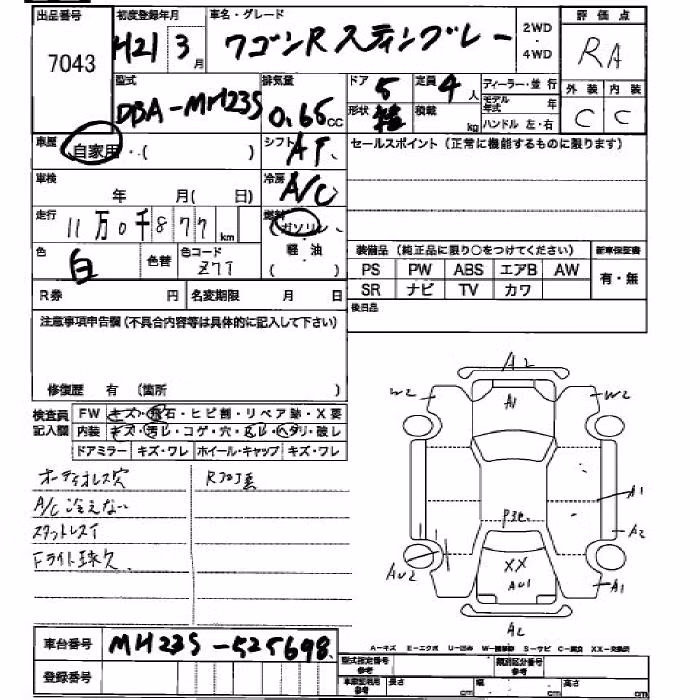 出品番号 初度登録年月 車名・グレード 評価点
7043 H21 3月 ワゴンR スティングレー 2WD・4WD RA
型式 排気量 ドア 定員 ディーラー・並行 外装 内装
DBA-MH23S 0.66cc 5 4人 モデル年式 年 C C
形状 積載 kg ハンドル 左・右
車歴 自家用・( ) シフト AT セールスポイント(正常に機能するものに限ります)
車検 年 月( 日) 冷房 A/C
走行 11万0千877km 燃料 ガソリン・軽油 ( )
色 白 色替 色コード Z7T
装備品(純正品に限り○をつけてください) 新車保証書
PS PW ABS エアB AW 有・無
SR ナビ TV カワ
R券 円 名変期限 月 日 後日品
注意事項申告欄(不具合内容等は具体的に記入して下さい)
修復歴 有 (箇所 )
検査員記入欄 FW キズ・飛石・ヒビ割・リペア跡・X要
内装 キズ・汚レ・コゲ・穴・スレ・ヘタリ・破レ
ドアミラー キズ・ワレ ホイール・キャップ キズ・ワレ
オーディオレス穴
A/C 冷えない
スタットレスT
Fライト球欠
A2
W2 A1 W2
A1
A2
AU2 XX AU1 A1
A2
A-キズ E-エクボ U-凹み W-補修跡 S-サビ C-腐食 XX-交換済
車台番号 MH23S-525698
登録番号 型式指定番号 参考 類別区分番号 参考
長さ cm 幅 cm 高さ cm